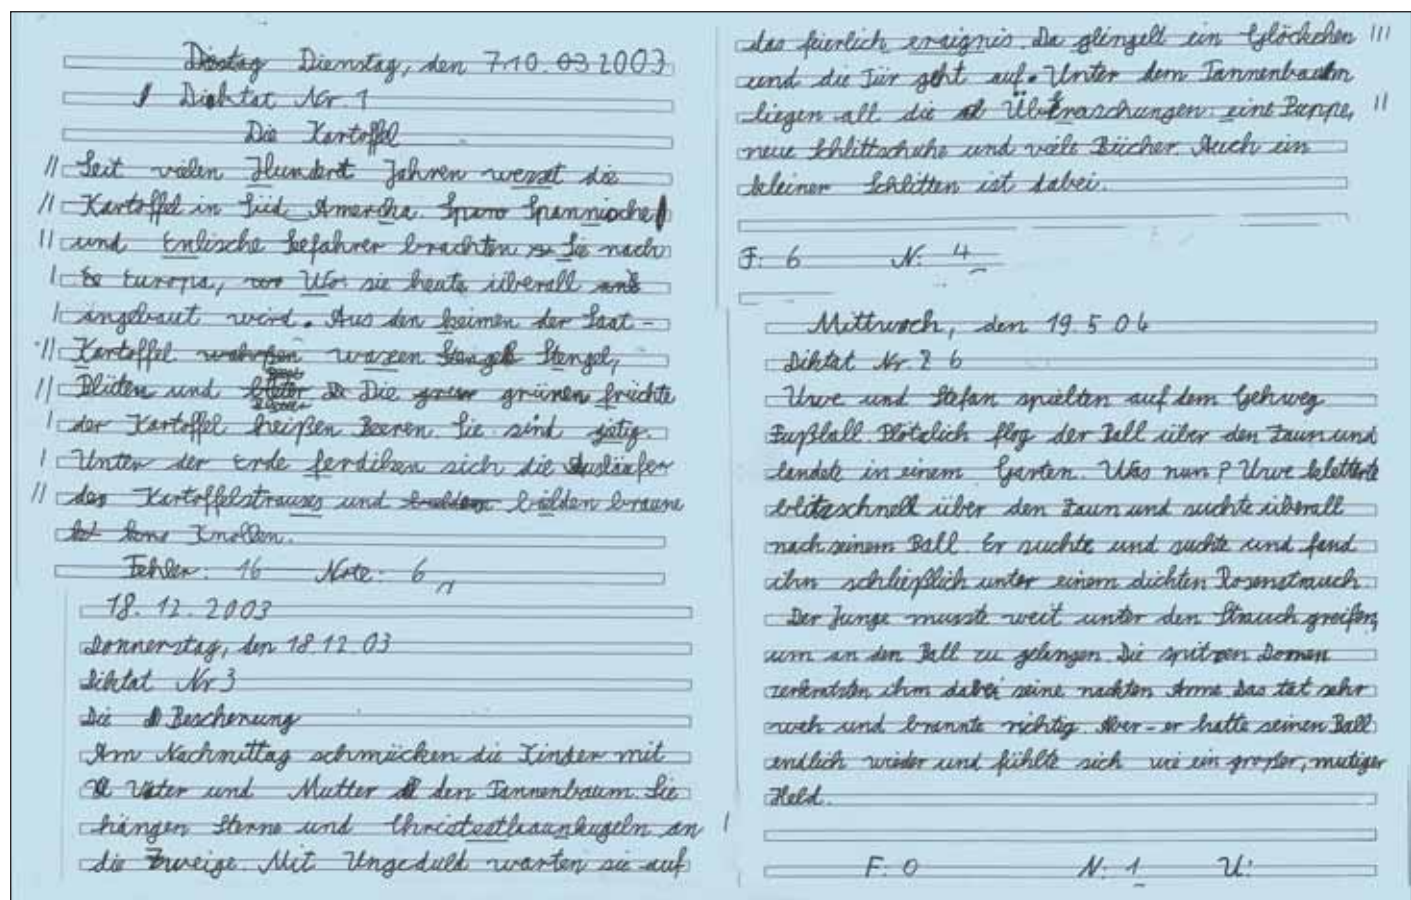 Diestag Dienstag, den 7.10.03 2003
Diktat Nr. 1
Die Kartoffel
Seit vielen Hundert Jahren werst die
Kartoffel in Süd Amercha. Spano Spannische
und Enlische Sefahrer brachten Sie nach
Europa, wo Wo sie heute überall
angebaut wird. Aus den keimen der Saat-
Kartoffel waxen Stengel Stengel,
Blüten und Die grünen früchte
der Kartoffel heißen Beeren. Sie sind gitig.
Unter der Erde ferdiken sich die Ausläufer
des Kartoffelstrauxes und bielden braune
Knollen.
Fehler: 16 Note: 6
18.12.2003
Donnerstag, den 18.12.03
Diktat Nr 3
Die Bescherung
Am Nachmittag schmücken die Kinder mit
Vater und Mutter den Tannenbaum. Sie
hängen Sterne und Christestbaumkugeln an
die Zweige. Mit Ungeduld warten sie auf
das feierlich eraignis. Da glingelt ein Glöckchen
und die Tür geht auf. Unter dem Tannenbaum
liegen all die Überraschungen: eine Puppe,
neue Schlittschuhe und viele Bücher. Auch ein
kleiner Schlitten ist dabei.
F: 6 N: 4
Mittwoch, den 19.5 04
Diktat Nr. 6
Urwe und Stefan spielten auf dem Gehweg
Fußball. Plötzlich flog der Ball über den Zaun und
landete in einem Garten. Was nun? Urwe kletterte
blitzschnell über den Zaun und suchte überall
nach seinem Ball. Er suchte und suchte und fand
ihn schließlich unter einem dichten Rosenstrauch.
Der Junge musste weit unter den Strauch greifen,
um an den Ball zu gelangen. Die spitzen Dornen
zerkratzten ihm dabei seine nackten Arme. Das tat sehr
weh und brannte richtig. Aber - er hatte seinen Ball
endlich wieder und fühlte sich wie ein großer, mutiger
Held.
F: 0 N: 1 U: